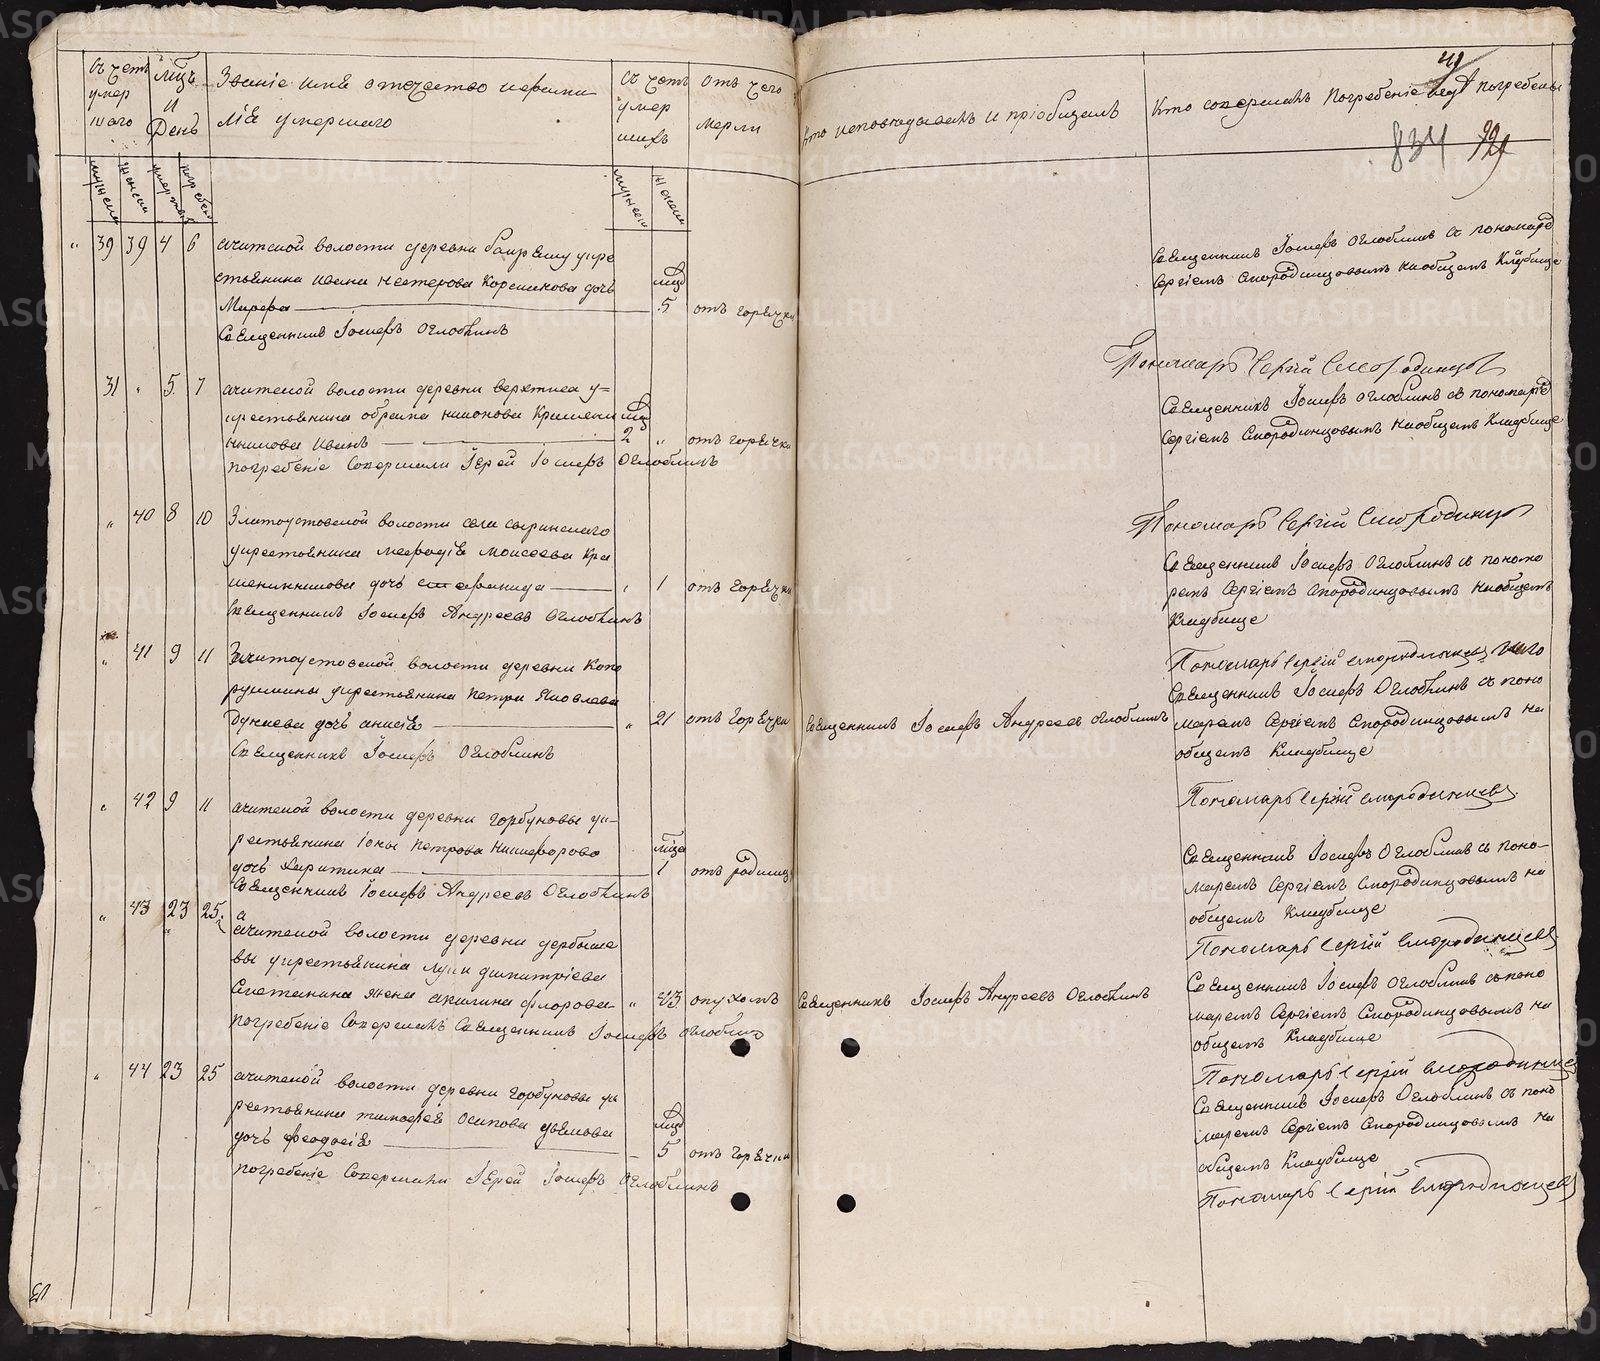 Счетъ умер шаго
Мцъ и День
Званіе имя отечество и фами
лія умершаго
Счетъ умер шихъ
отъ чего мерли
Кто исповедывалъ и пріобщалъ
Кто совершалъ погребеніе и гдѣ погребены
41
834
мужска
женска
умертвія
погребен
мужеска
женска
39 39 4 6 ачитской волости деревни
стьянина ивана нестерова Корсикова дочь
мцъ
Марфа 5 отъ горячки
Священникъ Іосифъ Оглоблинъ
Священникъ Іосифъ Оглоблинъ съ пономаремъ
Сергіемъ Смородинцовымъ на общемъ Кладбище
Пономарь Сергій Смородинцов
31 " 5 7 ачитской волости деревни
крестьянина
Иванъ 2 " отъ горячки
погребеніе Совершали Іерей Іосифъ Оглоблинъ
Священникъ Іосифъ Оглоблинъ съ пономаремъ
Сергіемъ Смородинцовымъ на общемъ Кладбище
Пономарь Сергій Смородинцов
" 40 8 10 Златоустовской волости села сыринскаго
крестьянина мефодія Моисеева Кра
шенинникова дочь стефанида " 1 отъ горячки
Священникъ Іосифъ Андреевъ Оглоблинъ
Священникъ Іосифъ Оглоблинъ съ понома
ремъ Сергіемъ Смородинцовымъ на общемъ
Кладбище
Пономарь Сергій смородинцев
" 41 9 11 Златоустовской волости деревни
крестьянина петра Яковлева
дочь анисія " 21 отъ горячки
Священникъ Іосифъ Оглоблинъ
Священникъ Іосифъ Андреевъ оглоблинъ
Священникъ Іосифъ Оглоблинъ съ поно
маремъ Сергіемъ Смородинцовымъ на
общемъ Кладбище
Пономарь Сергій смородинцев
" 42 9 11 ачитской волости деревни горбуновы к
рестьянина Іоны петрова никифорова
мцъ
дочь харитина 1 отъ родимца
Священникъ Іосифъ Андреевъ Оглоблинъ
Священникъ Іосифъ Оглоблинъ съ поно-
маремъ Сергіемъ Смородинцовымъ на
общемъ Кладбище
Пономарь Сергій Смородинцевъ
" 43 23 25 ачитской волости деревни дербыше
вы крестьянина луки димитріева
Сметанина жена акилина флорова " 43 опухомъ
погребеніе Совершалъ Священникъ Іосифъ оглоблинъ
Священникъ Іосифъ Андреевъ Оглоблинъ
Священникъ Іосифъ Оглоблинъ съ поно
маремъ Сергіемъ Смородинцовымъ на
общемъ Кладбище
Пономарь Сергій Смородинцев
" 44 23 25 ачитской волости деревни горбуновы к
рестьянина тимофея осипова
мцъ
дочь феодосія 5 отъ горячки
погребеніе Совершали Іерей Іосифъ Оглоблинъ
Священникъ Іосифъ Оглоблинъ съ поно
маремъ Сергіемъ Смородинцовымъ на
общемъ Кладбище
Пономарь Сергій Смородинцевъ
METRIKI.GASO-URAL.RU